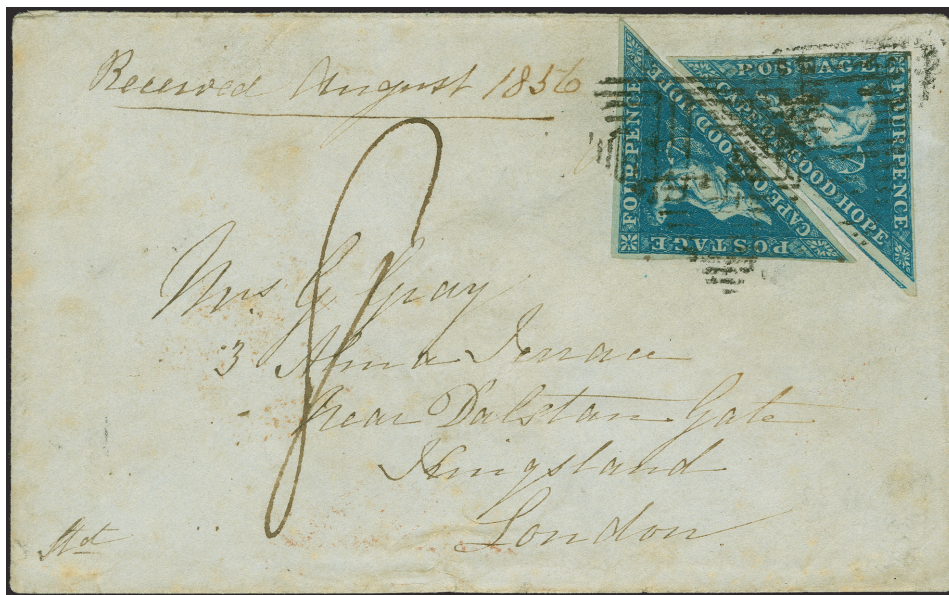 Received August 1856
POSTAGE
FOUR PENCE
CAPE OF GOOD HOPE
FOUR PENCE
POSTAGE
CAPE OF GOOD HOPE
8
Mrs G Gray
3 Alma Terrace
Near Dalstan Gate
Kingsland
London